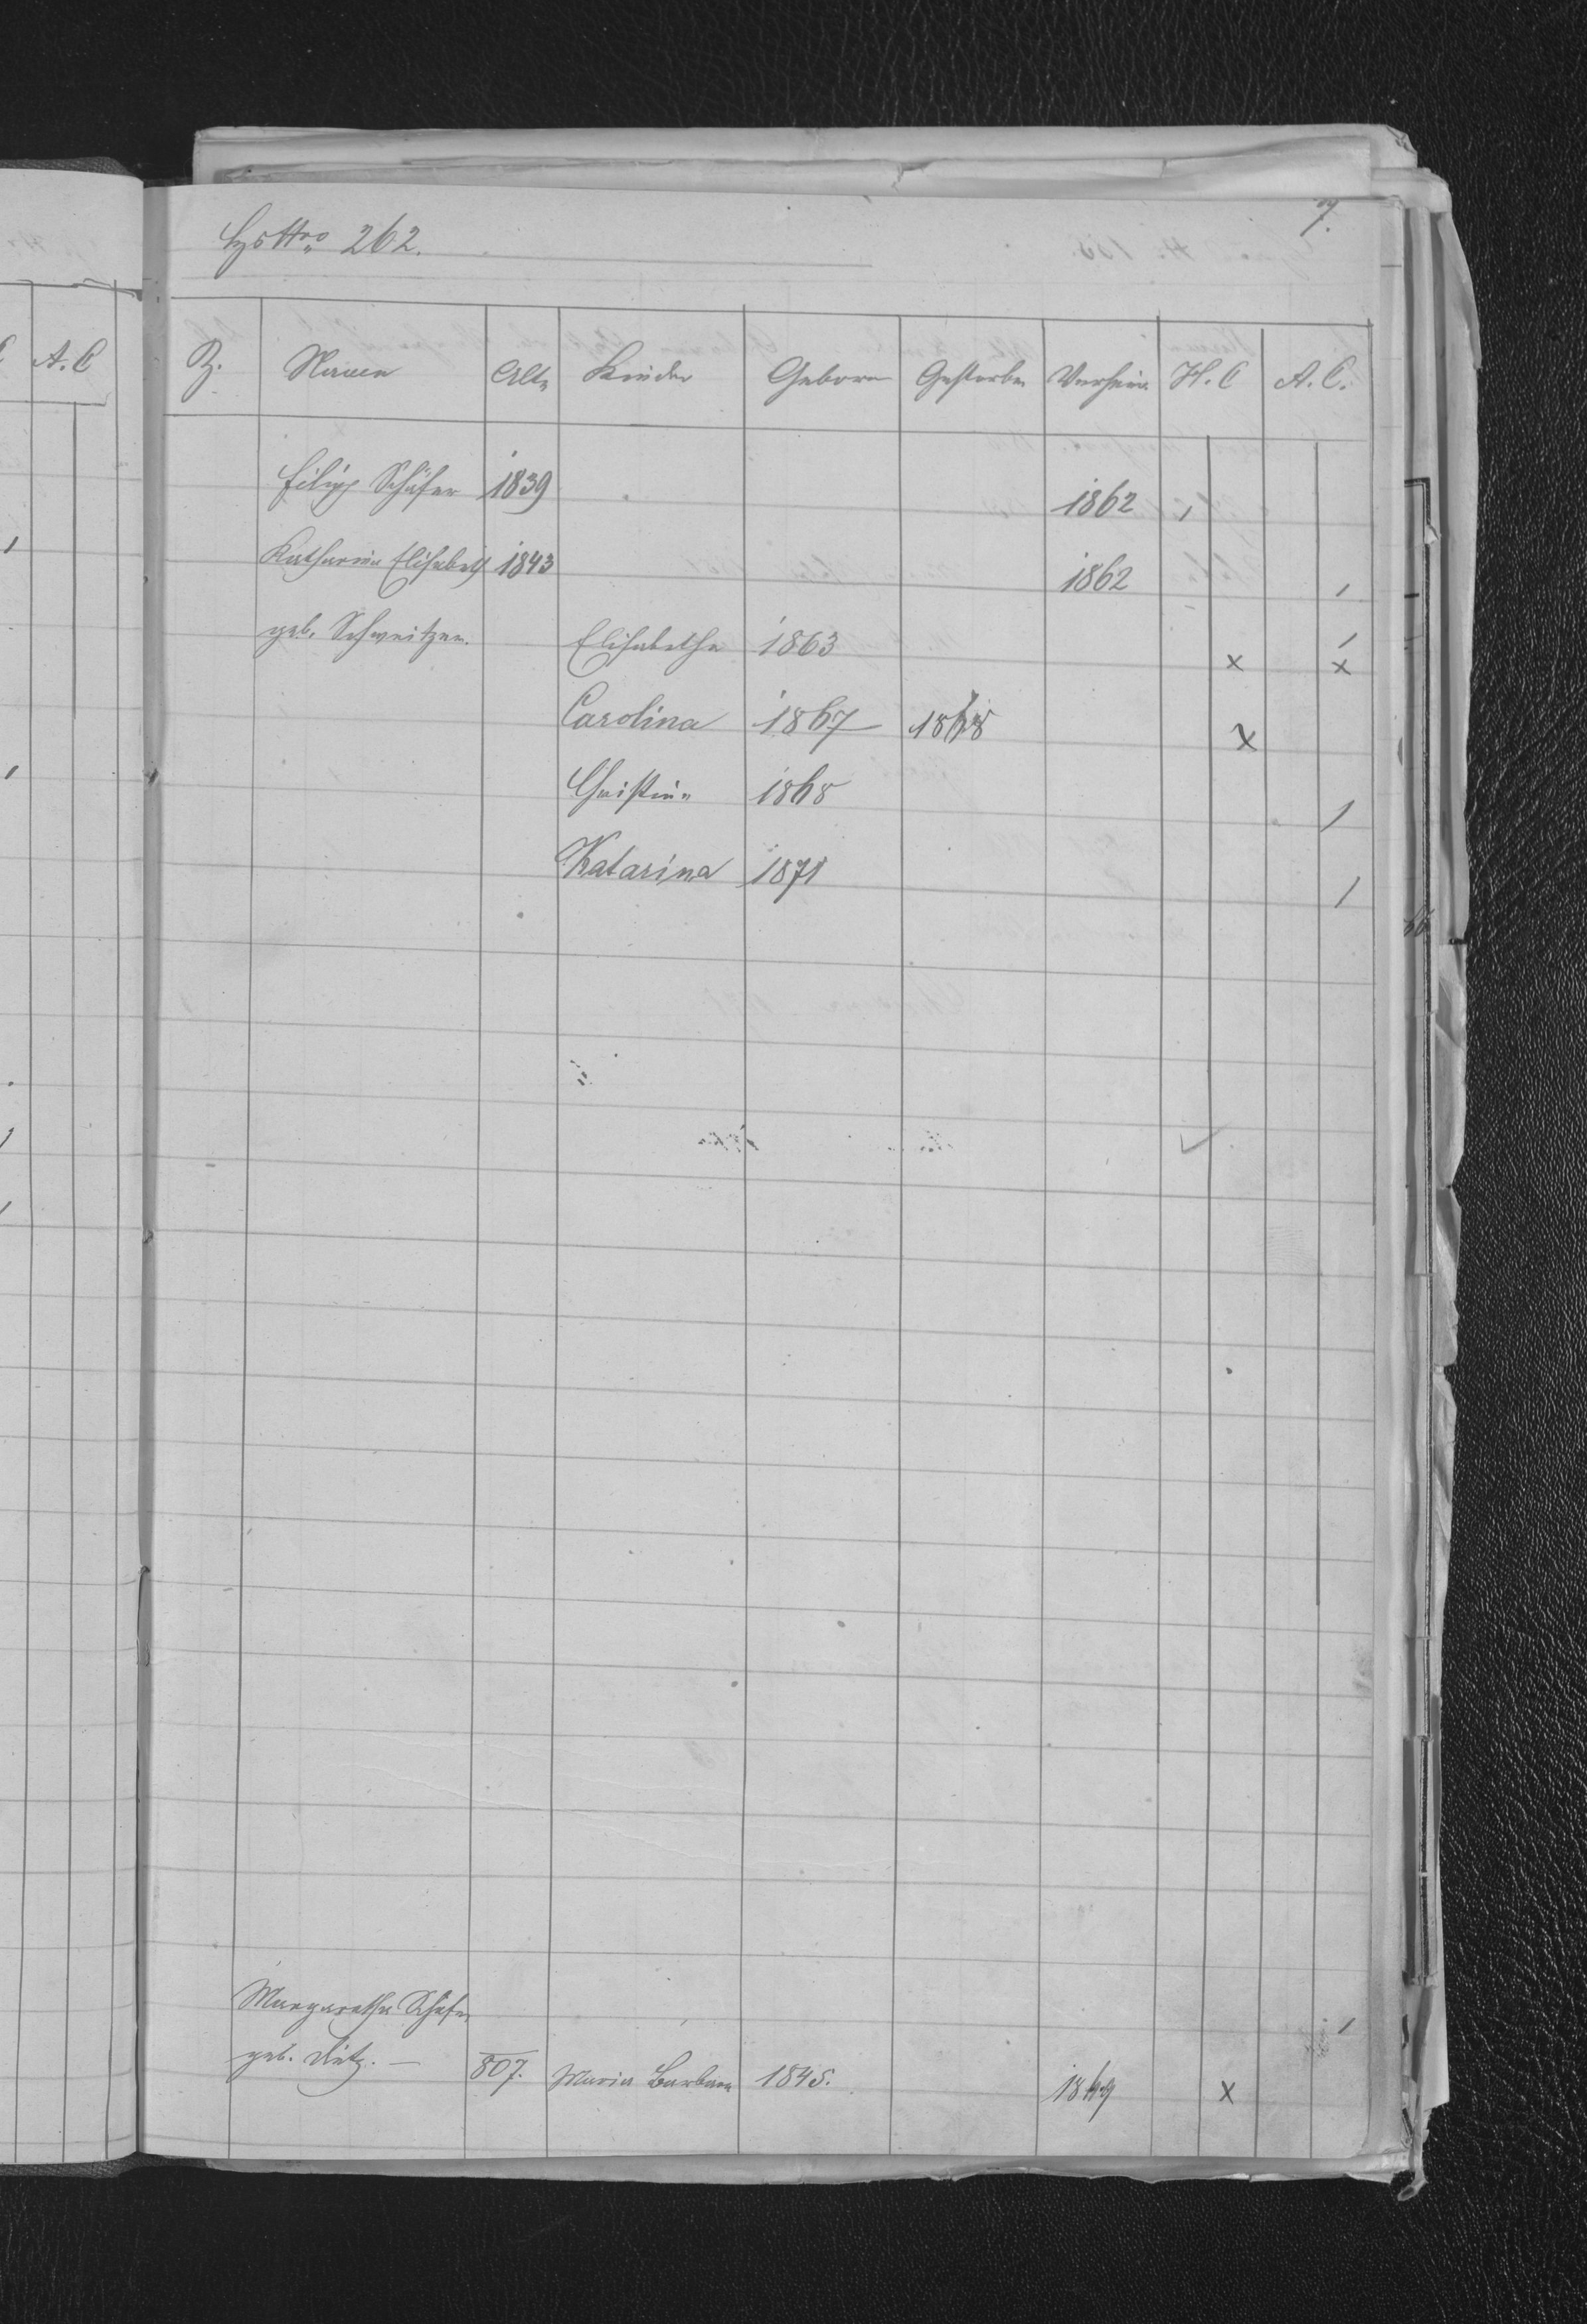 A. C
7.
Hs Nro 262.
Z. Namen Alte Kinder Geborn Gestorben Verheir. H. C A. C.
Filipp Schäfer 1839 1862 /
Katharina Elisabeth 1843 1862 /
geb. Schweitzer. Elisabetha 1863 x / x
Carolina 1867 1868 x
Christina 1868 /
Katarina 1871 /
Margaretha Schäfer /
geb. Dietz. — 807. Maria Barbara 1845. 1869 x